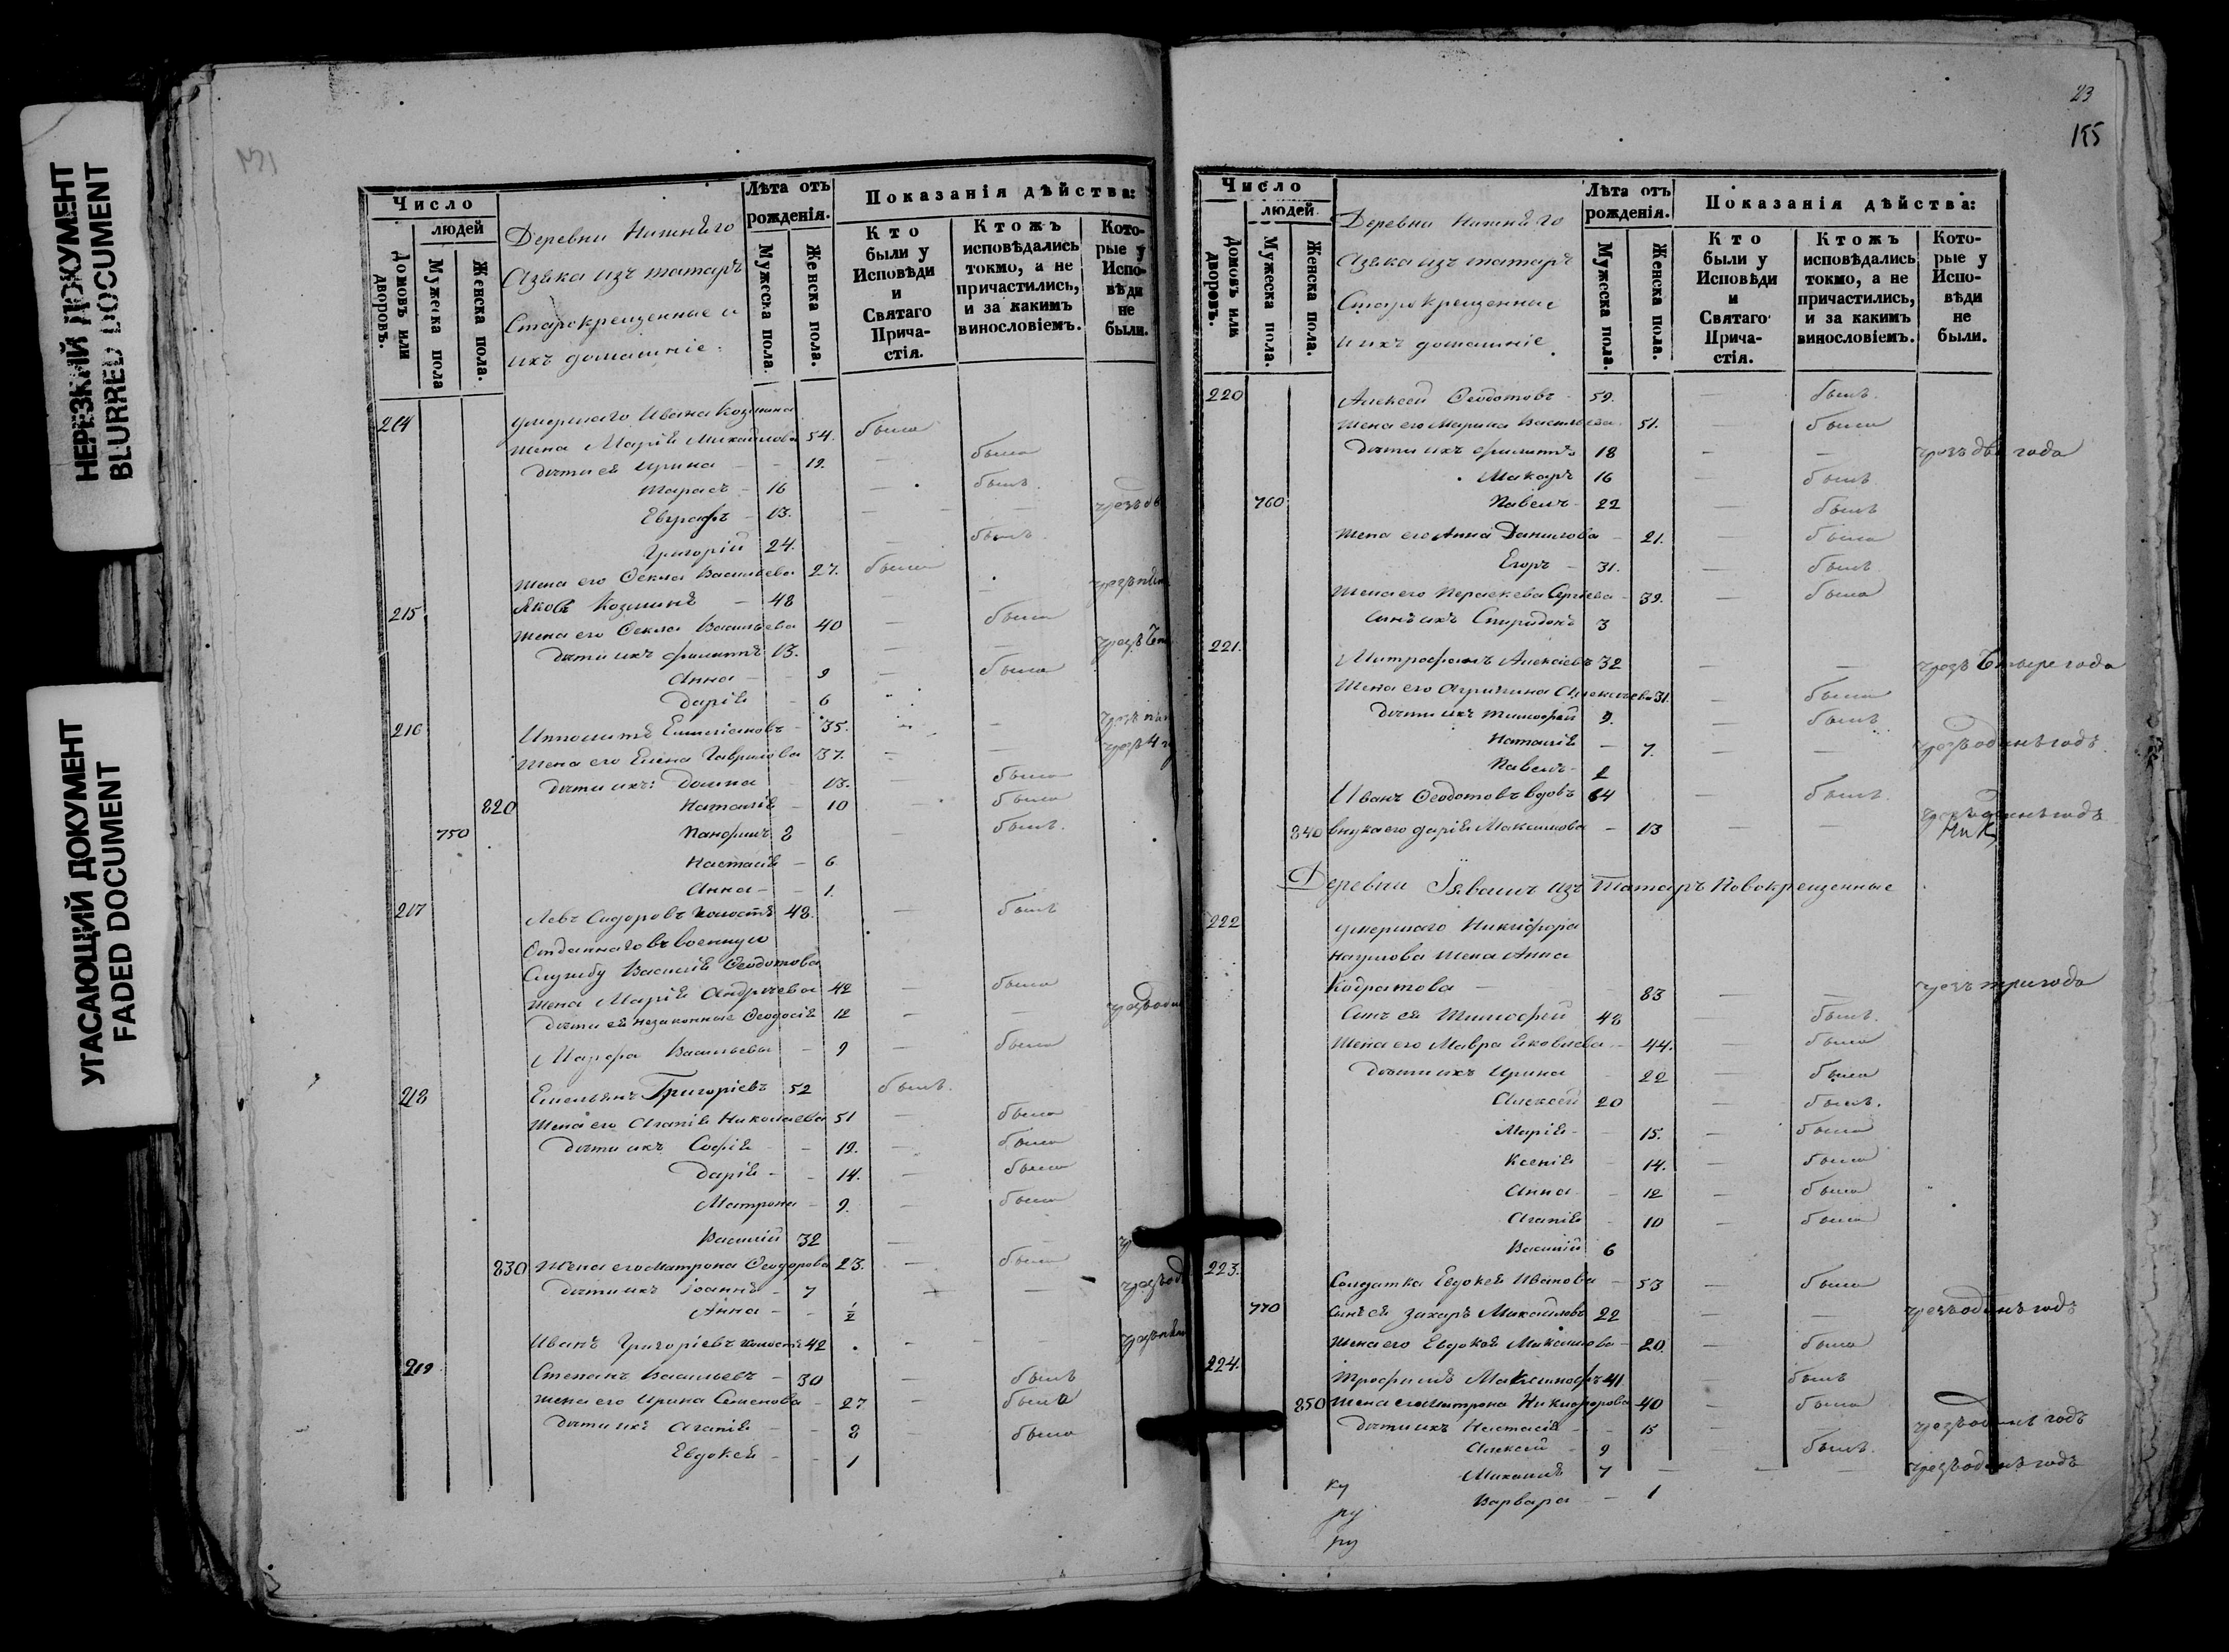 НЕРЕЗКИЙ ДОКУМЕНТ
BLURRED DOCUMENT
УГАСАЮЩИЙ ДОКУМЕНТ
FADED DOCUMENT
Число
людей
Домовъ или дворовъ.
Мужеска пола
Женска пола.
Деревни Нижняго
Азяка изъ татаръ
Старокрещенные и
ихъ домашніе:
Лѣта отъ рожденія.
Мужеска пола.
Женска пола.
Показанія дѣйства:
Кто были у Исповѣди и Святаго Прича-стія.
Ктожъ исповѣдались токмо, а не причастились, и за какимъ винословіемъ.
Кото-рые у Испо-вѣди не были.
214 умершаго Ивана Козмина
жена Марія Михайлова 54. была
дѣти ея Ирина - - 19. - была
Тарасъ - 16 - былъ.
Евграфъ - 13. - - чрезъ дв
Григорій 24. - былъ.
жена его Ѳекла Васильева 27. была
215 Яковъ Козминъ - 48 - -
жена его Ѳекла Васильева 40 - была
дѣти ихъ Филиппъ 13. - -
Анна - - 9 - была
Дарія - 6
216 Ипполитъ Емиліановъ - 35. - -
жена его Елена Гаврилова 37. - -
дѣти ихъ: Домна - 13. - была
820 Наталія - 10 была
750 Панфилъ 8 былъ.
Настасія - 6
Анна - - 1.
217 Левъ Сидоровъ холостъ 48. - былъ
Отданнаго въ военную
Службу Василія Ѳеодотова
жена Марія Андреева 42 - была
дѣти ея незаконные Ѳеодосія 12 - -
Марфа Васильева - 9 - была
218 Емельянъ Григоріевъ 52 былъ.
жена его Агапія Николаева 51 - была
дѣти ихъ Софія - - 19. - была
Дарія - - 14. - была
Матрона - 9. - была
Василій 32 - -
830 жена его Матрона Ѳеодорова 23. - была
дѣти ихъ Іоаннъ - 7 - -
Анна - - ½
Иванъ Григоріевъ холостъ 42 - -
219 Степанъ Васильевъ - 30 - былъ
жена его Ирина Семенова - 27 - была
дѣти ихъ Агапія - - 8 - была
Евдокея - - 1
23
155
Число
людей.
Домовъ или дворовъ.
Мужеска пола.
Женска пола.
Деревни Нижняго
Азяка изъ татаръ
Старокрещенные
и ихъ домашніе
Лѣта отъ рожденія.
Мужеска пола.
Женска пола.
Показанія дѣйства:
Кто были у Исповѣди и Святаго Прича-стія.
Ктожъ исповѣдались токмо, а не причастились, и за какимъ винословіемъ.
Кото-рые у Испо-вѣди не были.
220 Алексей Ѳеодотовъ - 59. - былъ.
жена его Марина Васильева 51. - была
дѣти ихъ Филиппъ 18 - - чрезъ два года
Макаръ 16 - былъ
760 Павелъ - 22 - былъ
жена его Анна Данилова - 21. - была
Егоръ - 31. - былъ.
жена его Параскева Сергеева - 39. - была
сынъ ихъ Спиридонъ 3
221. Митрофанъ Алексіевъ 32 - - чрезъ четыре года
жена его Агрипина Алексѣева 31. - была
дѣти ихъ Тимофей 9. - былъ
Наталія - 7. - - чрезъ одинъ годъ.
Павелъ - 2
Иванъ Ѳеодотовъ вдовъ 64 - былъ.
840 внука его Дарія Максимова - 13 - - чрезъ одинъ годъ
Деревни изъ Татаръ Новокрещенные
222 умершаго Никифора
Наумова жена Анна
Кодратова - 83 - - чрезъ три года
Сынъ ея Тимофей 48 - былъ.
жена его Мавра Яковлева - 44. - была
дѣти ихъ Ирина - 22 - была
Алексей 20 - былъ.
Марія - - 15. - была
Ксенія - 14. - была
Анна - - 12 - была
Агапія - 10 - была
Василій 6
223. Солдатка Евдокея Иванова - 53 - была
770 сынъ ея Захаръ Михайловъ 22 - - чрезъ одинъ годъ
жена его Евдокея Максимова - 20. - была
224. Трофимъ 41 - былъ
850 жена его Матрона Никифорова - 40 - была
дѣти ихъ Настасія - - 15 - чрезъ одинъ годъ
Алексей - 9 - былъ.
Михаилъ 7 - - - чрезъ одинъ годъ
Варвара - - 1